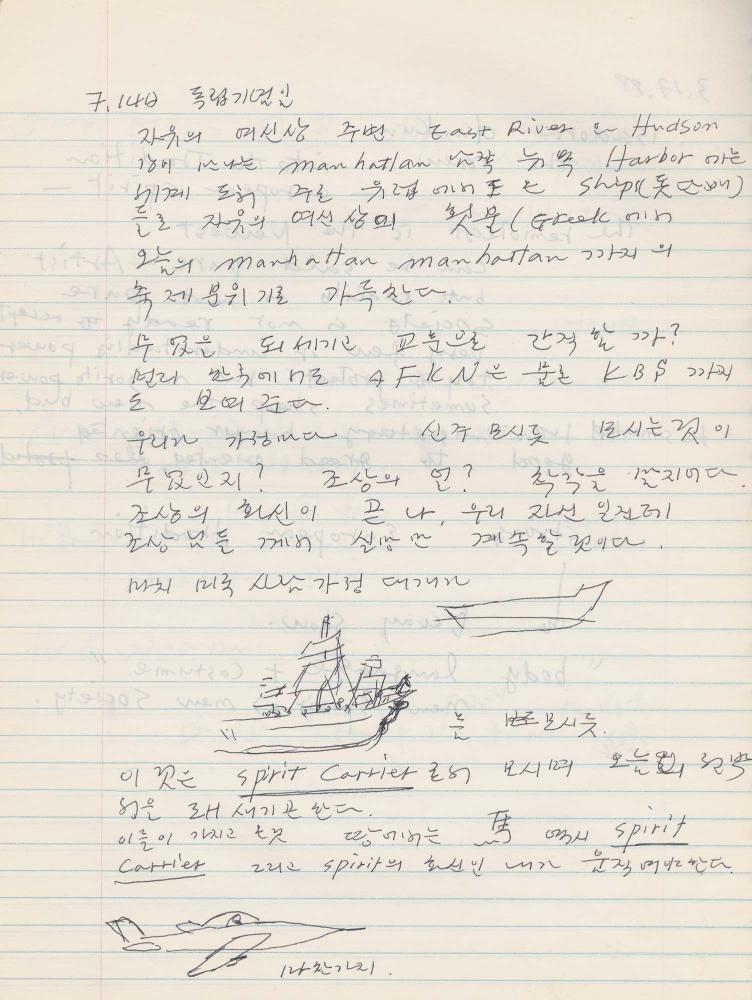 7. 14일 독립기념일
자유의 여신상 주변 East River 와 Hudson
강이 만나는 manhattan 남쪽 뉴욕 Harbor 에는
세계 도처 주로 유럽에서 또는 ship(돛단배)
들로 자유의 여신상의 횃불 (Greek 에서
오늘의 manhattan manhattan 까지의
축제분위기로 가득찬다.
무엇을 되새기고 교훈으로 간직할까?
멀리 한국에서도 AFKN은 물론 KBS 까지
도 보여준다.
우리가 가정마다 신주 모시듯 모시는것이
무엇인지? 조상의 얼? 착각을 말지어다.
조상의 화신이 곧 나, 우리 자신일진데
조상님들께서 실망만 계속할것이다.
마치 미국 사람 가정 대개가
를 모시듯.
이것은 spirit Carrier 로서 모시며 오늘의
을 되새기곤 한다.
이들이 가지고 온것 땅에서는 馬 역시 spirit
Carrier 그리고 spirit의 화신인 내가 움직여야한다.
마찬가지.